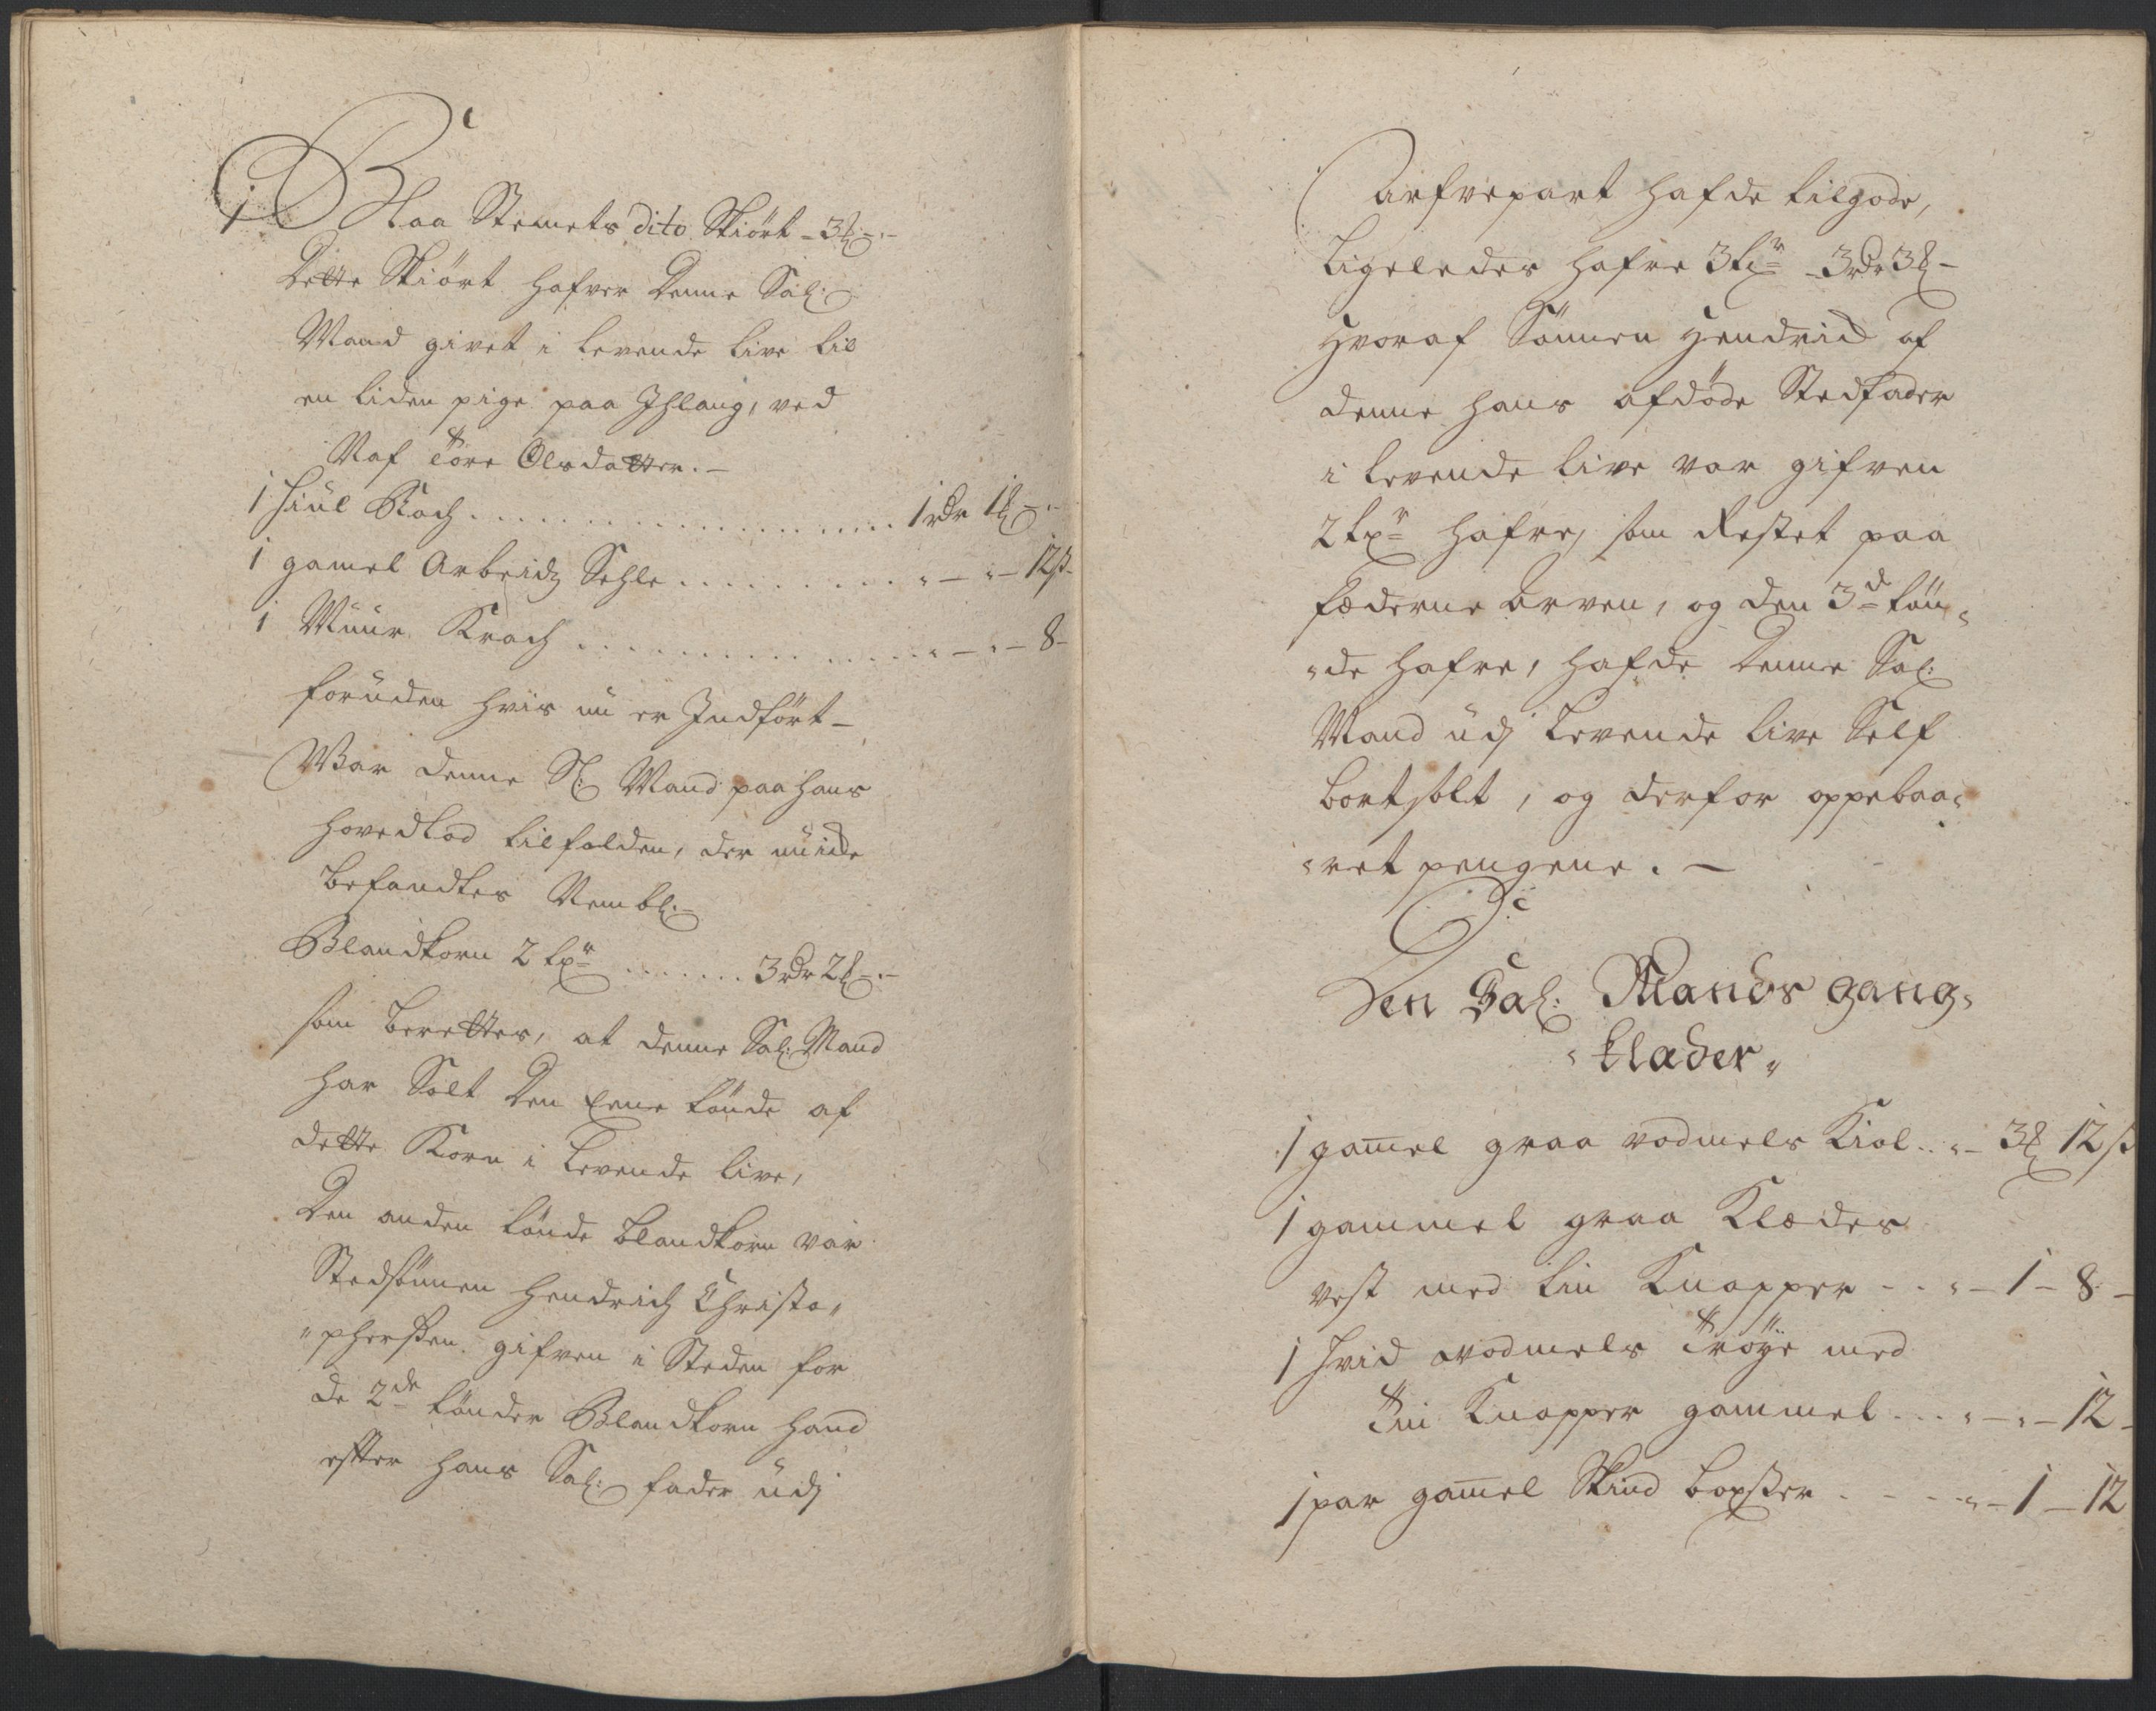 1 Blaa Stemets dito Skiört - 3 ℔ -.-
Dette Skiört hafver Denne Sal:
Mand givet i levende live til
en liden pige paa Ihlang, ved
Naf Töre Olsdatter. -
1 Hiul Rock . . . . . . . . . . 1 rdr 1 ℔ -.-
1 gamel Arbeidz Sehle . . . . . . . . „ - „ - 12 ß -
1 Muur Krach . . . . . . . . . . „ - „ - 8 -
foruden hvis nu er Indfört -
Var denne Sl: Mand paa hans
hovedlod tilfalden, der nu icke
befandtes Nembl: -
Blandkorn 2 txr . . . . . . . 3 rdr 2 ℔ -.-
som berettes, at denne Sal: Mand
har Solt Den Eene tönde af
dette Korn i Levende live,
Den anden tönde blandkorn var
Stedsönnen Hendrich Christo„
„phersen gifven i Steden for
de 2de tönder Blandkorn hand
efter hans Sal: fader udj
Arfvepart hafde tilgode,
Ligeledes hafre 3 txr - 3 rdr 3 ℔ -
Hvoraf Sönnen Hendrick af
denne hans afdöde Stedfader
i levende live var gifven
2 txr hafre, som Restet paa
fæderne Arven, og den 3d tön„
„de hafre, hafde Denne Sal:
Mand udj Levende live Self
bortsolt, og derfor oppebaa„
„ret pengene. -
Den Sal: Mands gang„
„klæder„
1 gamel graa vadmels Kiol . . „ - 3 ℔ 12 ß
1 gammel graa Klædes
vest med tin Knapper - . . „ - 1 - 8 -
1 Hvid vadmels Tröye med
Tin Knapper gammel . . . „ - „ - 12 -
1 par gamel Skind boxser - - - - „ - 1 - 12